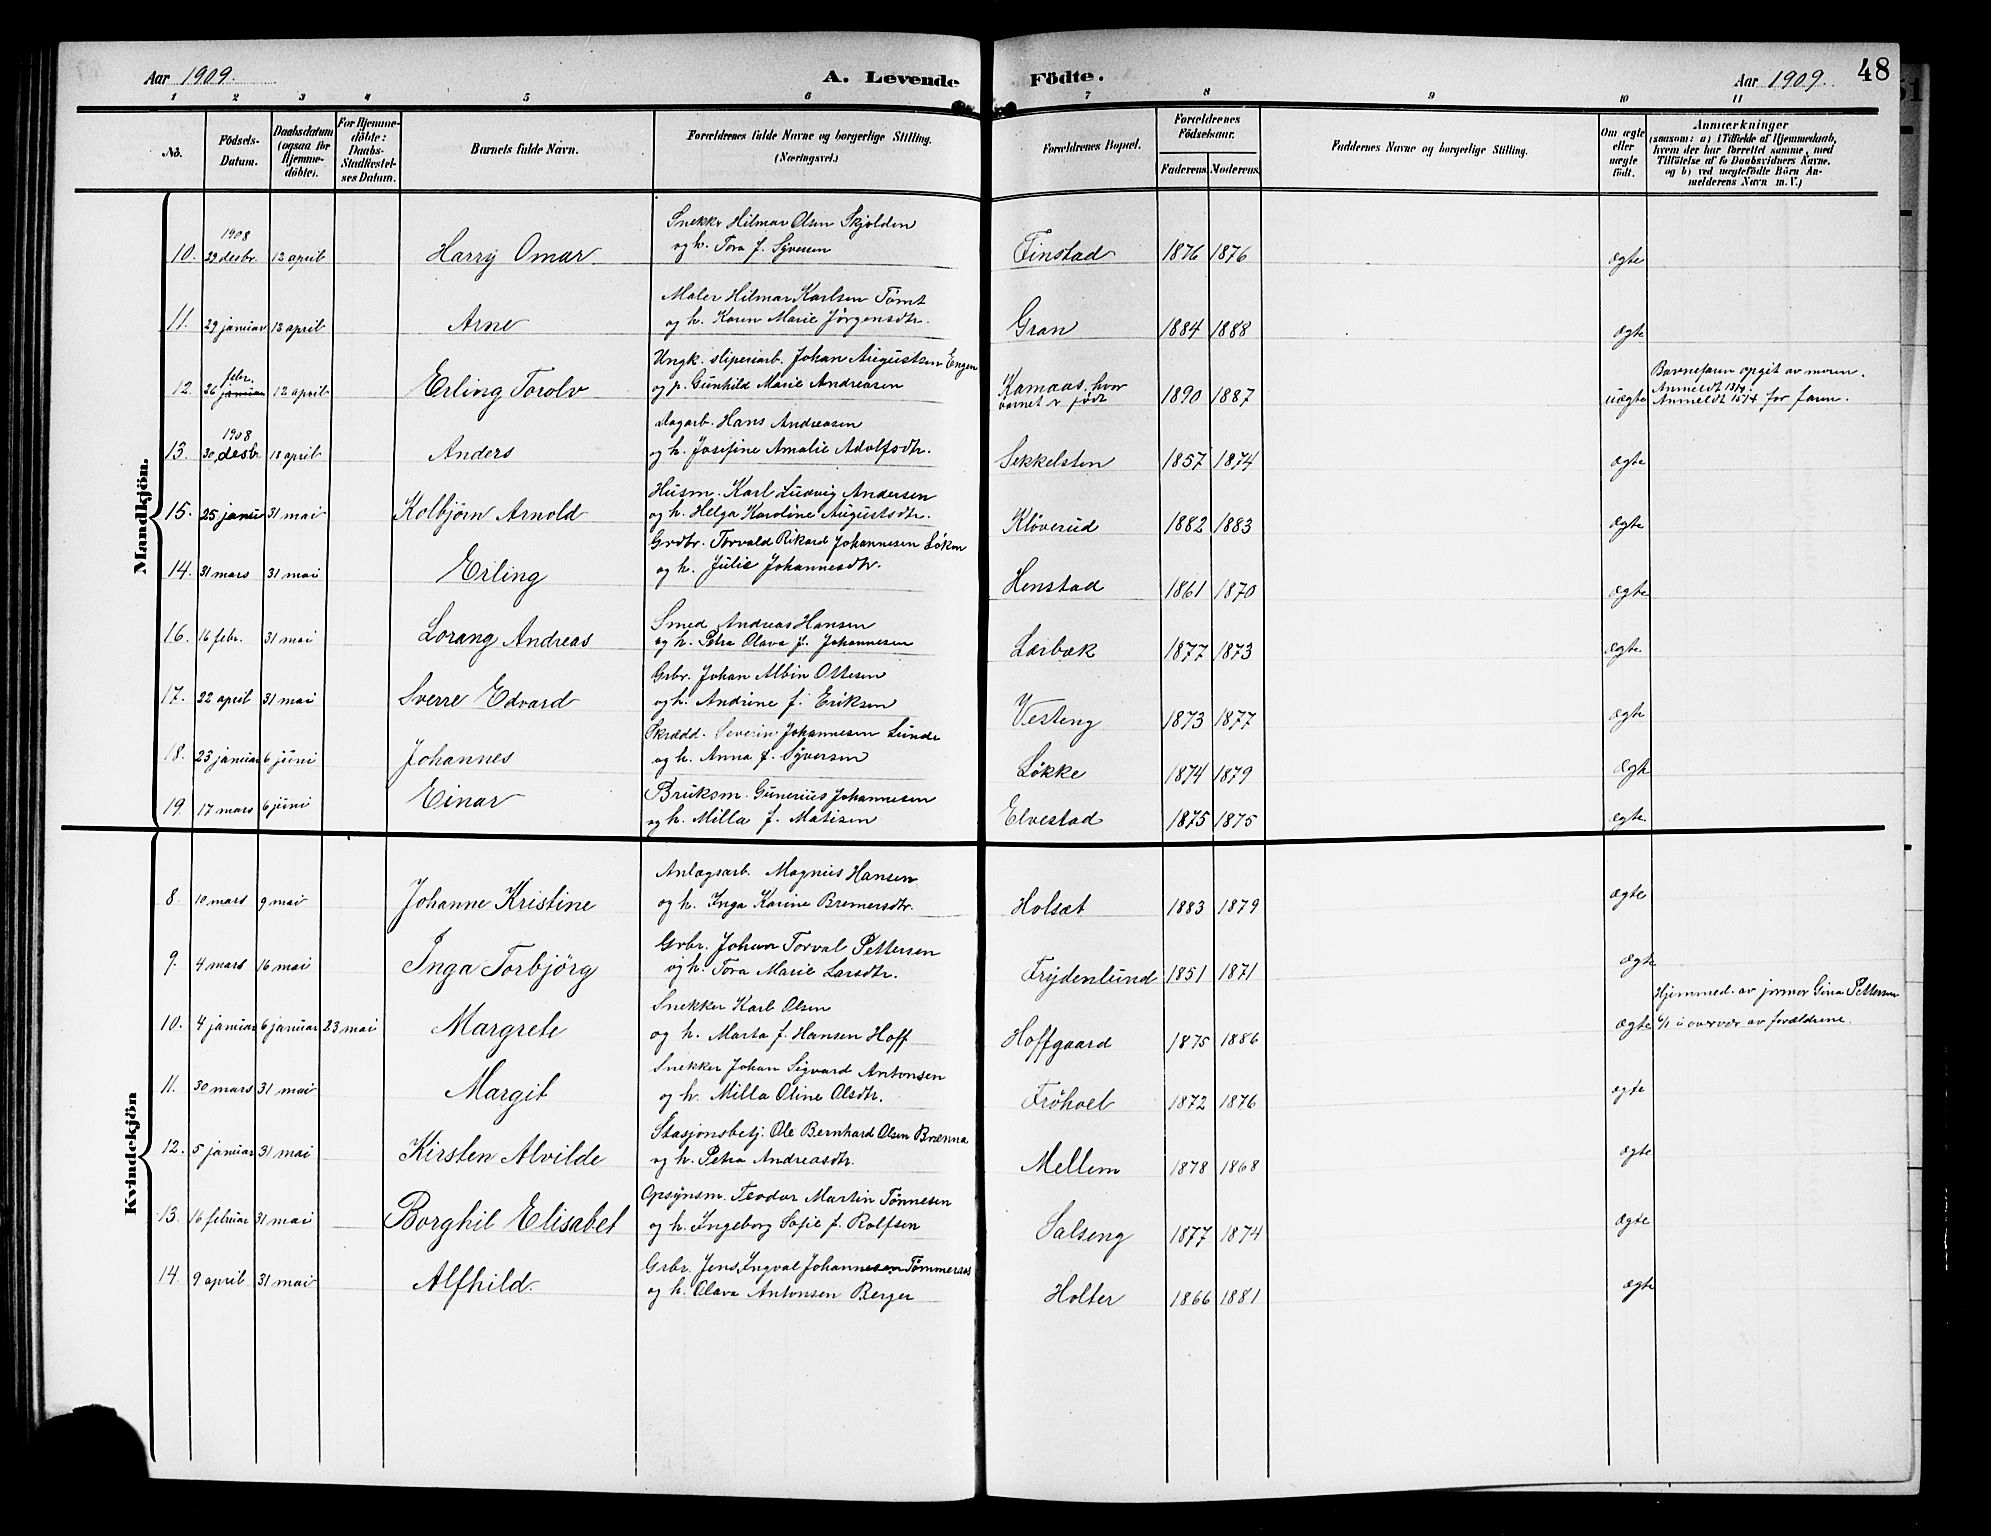 Aar 1909. A. Levende Födte. Aar 1909. 48
1 2 3 4 5 6 7 8 9 10 11
No. Födsels-Datum. Daabsdatum (ogsaa for Hjemme-döbte). For Hjemme-döbte: Daabs-Stadfæstel-ses Datum. Barnets fulde Navn. Forældrenes fulde Navne og borgerlige Stilling. (Næringsvei.) Forældrenes Bopæl. Forældrenes Födselsaar. Faderens. Moderens. Faddernes Navne og borgerlige Stilling. Om ægte eller uægte födt. Anmærkninger (saasom: a) i Tilfælde af Hjemmedaab, hvem der har forrettet samme, med Tilföielse af to Daabsvidners Navne, og b) ved uægtefödte Börn An-melderens Navn m. V.)
Mandkjön.
1908 Snekker Hilmar Olsen Skjolden
10. 29 desbr. 12 april Harry Omar. og h. Tora f. Syversen Finstad 1876 1876 ægte
Maler Hilmar Karlsen Tømt
11. 29 januar 12 april Arne og h. Karen Marie Jörgensdtr. Gran 1884 1888 ægte
febr. Ungk. sliperiarb. Johan Augustsen Engen Barnefaren opgit av moren.
12. 26 januar 12 april Erling Torolv og p. Gunhild Marie Andreasen Kamaas, hvor barnet er født 1890 1887 uægte Anmeldt 13/4. Anmeldt 15/4 for faren.
1908 Dagarb. Hans Andreasen
13. 30 desbr. 18 april Anders og h. Josefine Amalie Adolfsdtr. Sekkelsten 1857 1874 ægte
Husm. Karl Ludvig Andersen
15. 25 janu 31 mai Kolbjørn Arnold og h. Helga Karoline Augustsdtr. Kløverud 1882 1883 ægte
Grdbr. Torvald Rikard Johannesen Løken
14. 31 mars 31 mai Erling og h. Julie Johannesdtr. Henstad 1861 1870 ægte
Smed Andreas Hansen
16. 16 febr. 31 mai Lorang Andreas og h. Petra Olava f. Johannesen Lærbæk 1877 1873 ægte
Grbr. Johan Albin Ottesen
17. 22 april 31 mai Sverre Edvard og h. Andrine f. Eriksen Vesteng 1873 1877 ægte
Skrædd. Severin Johannesen Lunde
18. 23 januar 6 juni Johannes og h. Anna f. Syversen Løkke 1874 1879 ægte
Bruksm. Gunerius Johannesen
19. 17 mars 6 juni Einar og h. Milla f. Matisen Elvestad 1875 1875 ægte.
Kvindekjön
Anlægsarb. Magnus Hansen
8. 10 mars 9 mai Johanne Kristine og h. Inga Karine Bremersdtr. Holsæt 1883 1879 ægte
Grbr. Johan Torval Pettersen
9. 4 mars 16 mai Inga Torbjørg og h. Tora Marie Larsdtr. Frydenlund 1851 1871 ægte
Snekker Karl Olsen Hjemmed. av jormor Gina Pettersen
10. 4 januar 6 januar 23 mai Margrete og h. Marta f. Hansen Hoff Hoffgaard 1875 1886 ægte 6/1 i overvær av forældrene.
Snekker Johan Sigvard Antonsen
11. 30 mars 31 mai Margit og h. Milla Oline Olsdtr. Frøhoel 1872 1876 ægte
Stasjonsbetj. Ole Bernhard Olsen Brænna
12. 5 januar 31 mai Kirsten Alvilde og h. Petra Andreasdtr. Mellem 1878 1868 ægte
Opsynsm. Teodor Martin Tønnesen
13. 16 februar 31 mai Borghil Elisabet og h. Ingeborg Sofie f. Rolfsen Salseng 1877 1874 ægte
Grbr. Jens Ingval Johannesen Tømmeraas
14. 9 april 31 mai Alfhild. og h. Olava Antonsen Berger Holter 1866 1881 ægte